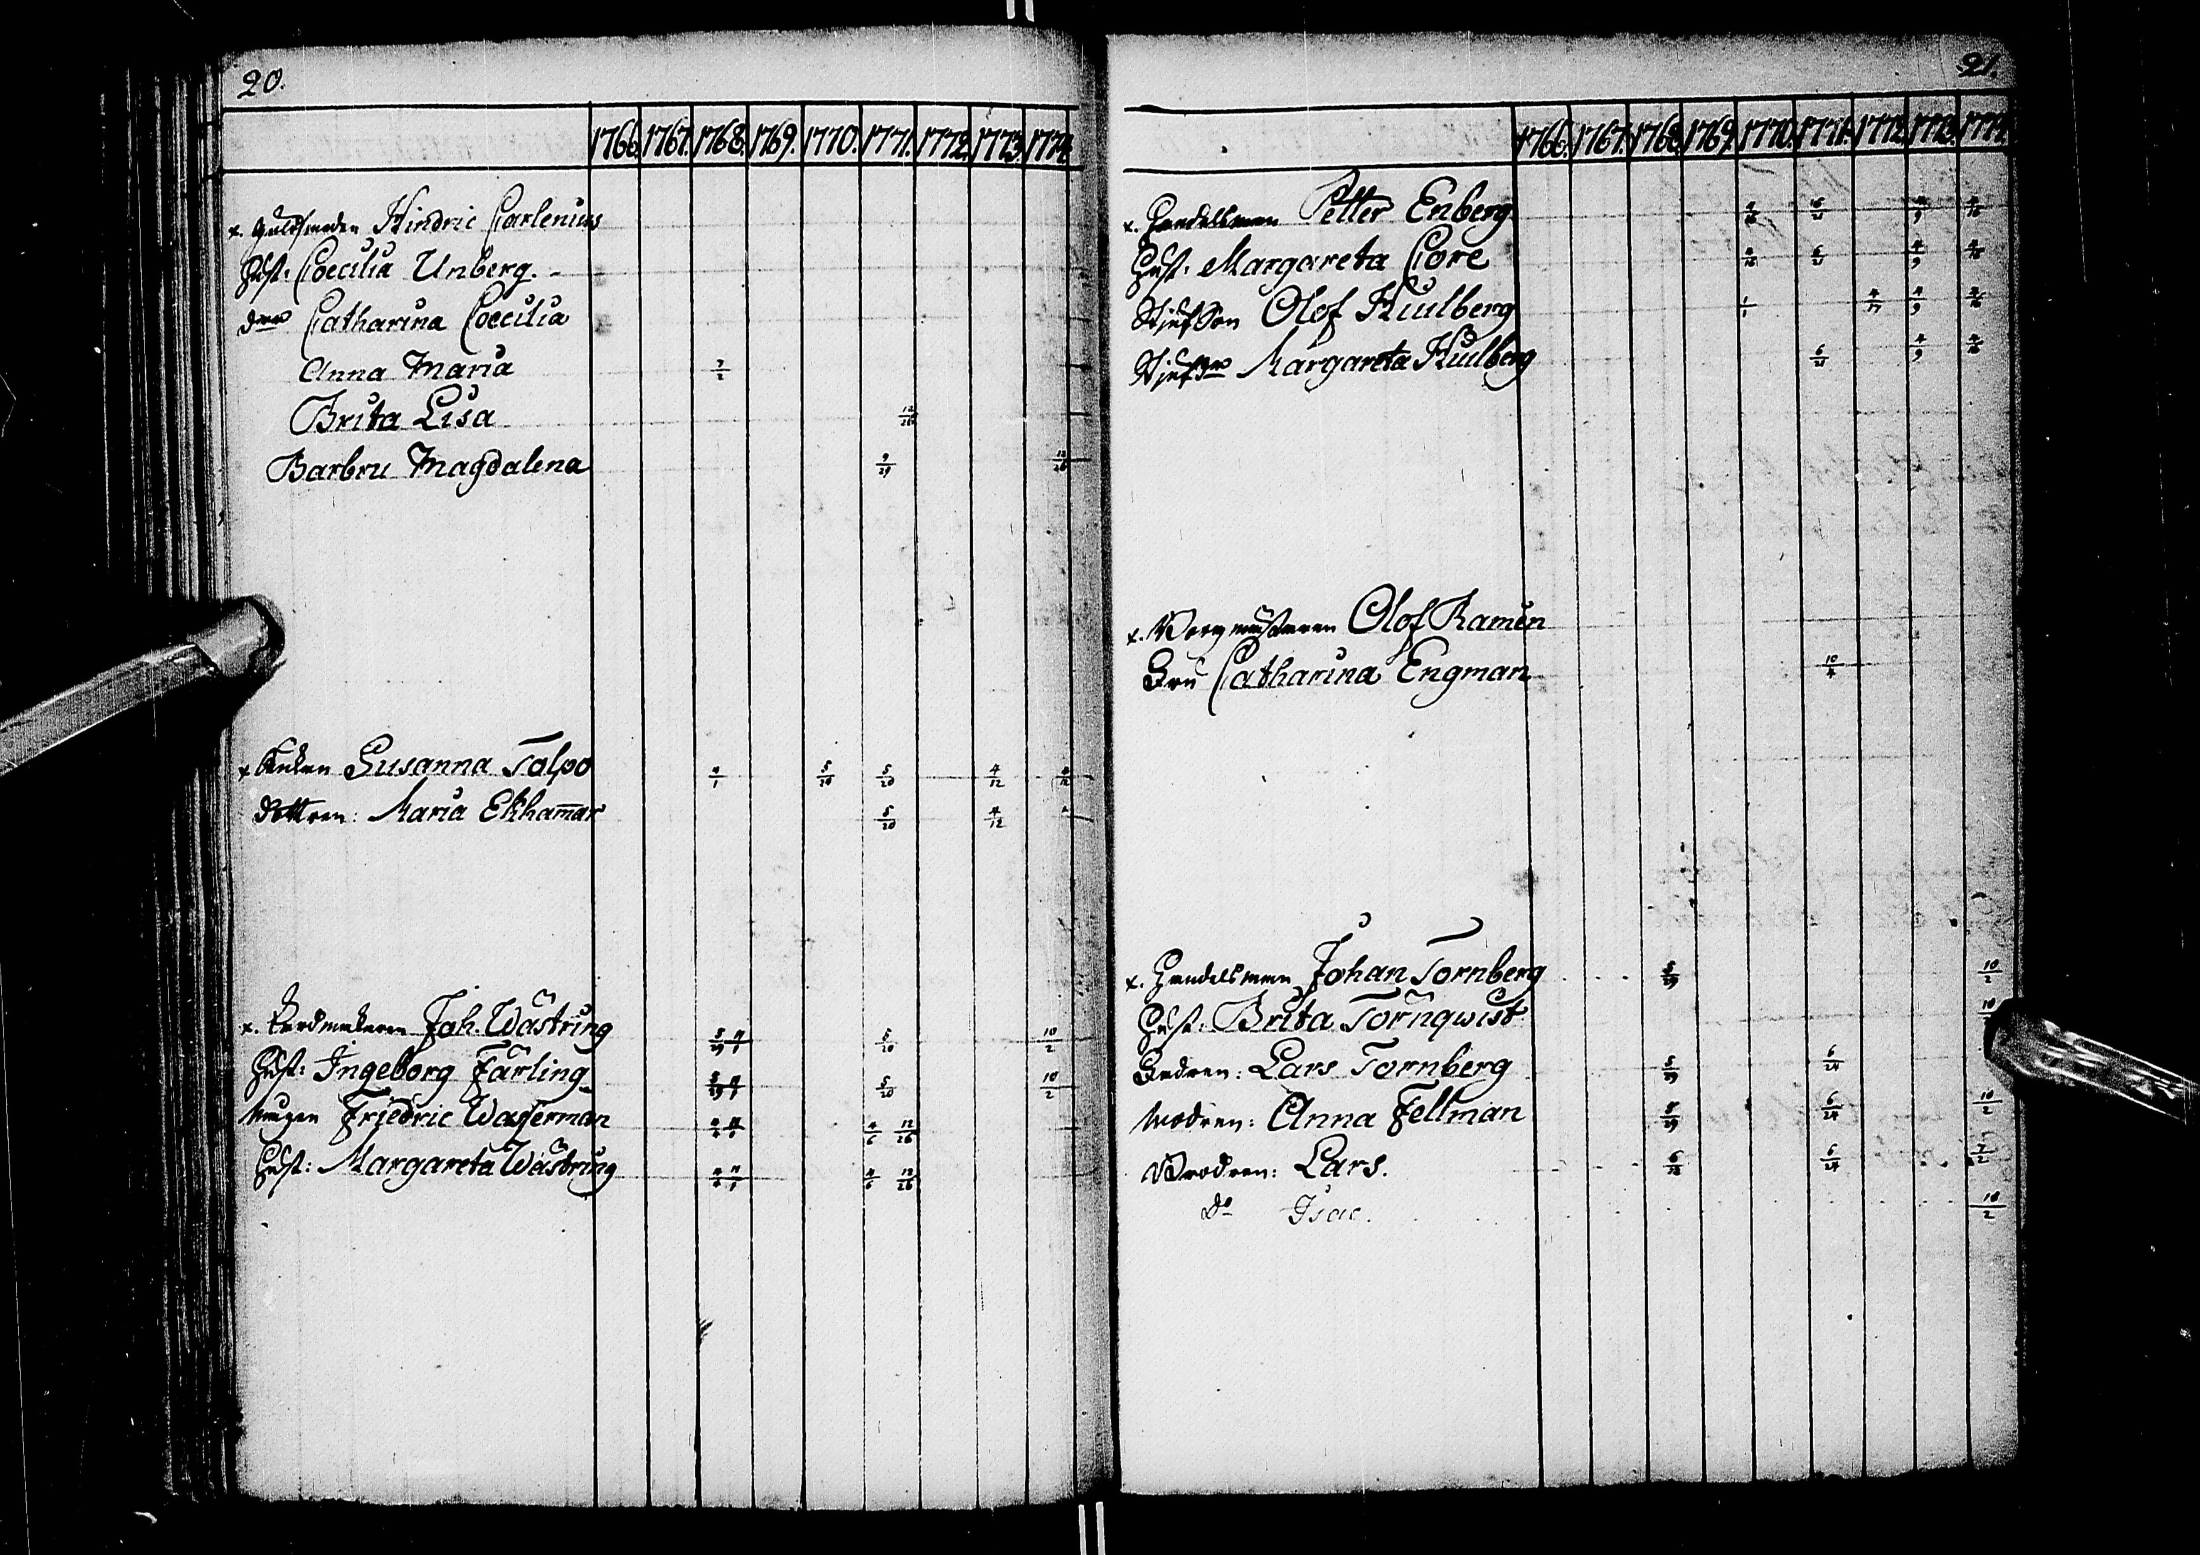 20.
1766. 1767. 1768. 1769. 1770. 1771. 1772. 1773. 1774.
x. Guldsmeden Hindric Carlenius
Hust: Coecilia Unberg.
dr Catharina Coecilia
Anna Maria 7/2
Brita Lisa 12/26
Barbru Magdalena 9/29 12/26
x Enkan Susanna Talpo 4/1 5/20 5/20 4/12 4/12
dottren: Maria Ekhamar 5/20 4/12
x. Joh. Wästring 5/29 5/20 10/2
Hust: Ingeborg Färling 5/29 5/20 10/2
Mågen Friedric Waserman 4/6 12/26
Hust: Margareta Wästring 4/6 12/26
21.
1766. 1767. 1768. 1769. 1770. 1771. 1772. 1773. 1774.
x. Handelsman Petter Enberg 4/16 6/21 4/9 4/16
Hust: Margareta Core 4/16 6/21 4/9 4/16
StjufSon Olof Huulberg 1/1 4/17 4/9 4/16
Stjufdr Margareta Huulberg 6/21 4/9 4/16
x. Borgmästaren Olof Ramen
Fru Catharina Engman 10/4
x. Handelsman Johan Tornberg 5/29 10/2
Hust: Brita Törnqwist 10
Fadren: Lars Tornberg 5/29 6/24
Modren: Anna Fellman 5/29 6/24 10/2
Brodren: Lars. 6/24 7/2
Do Isac. 10/2